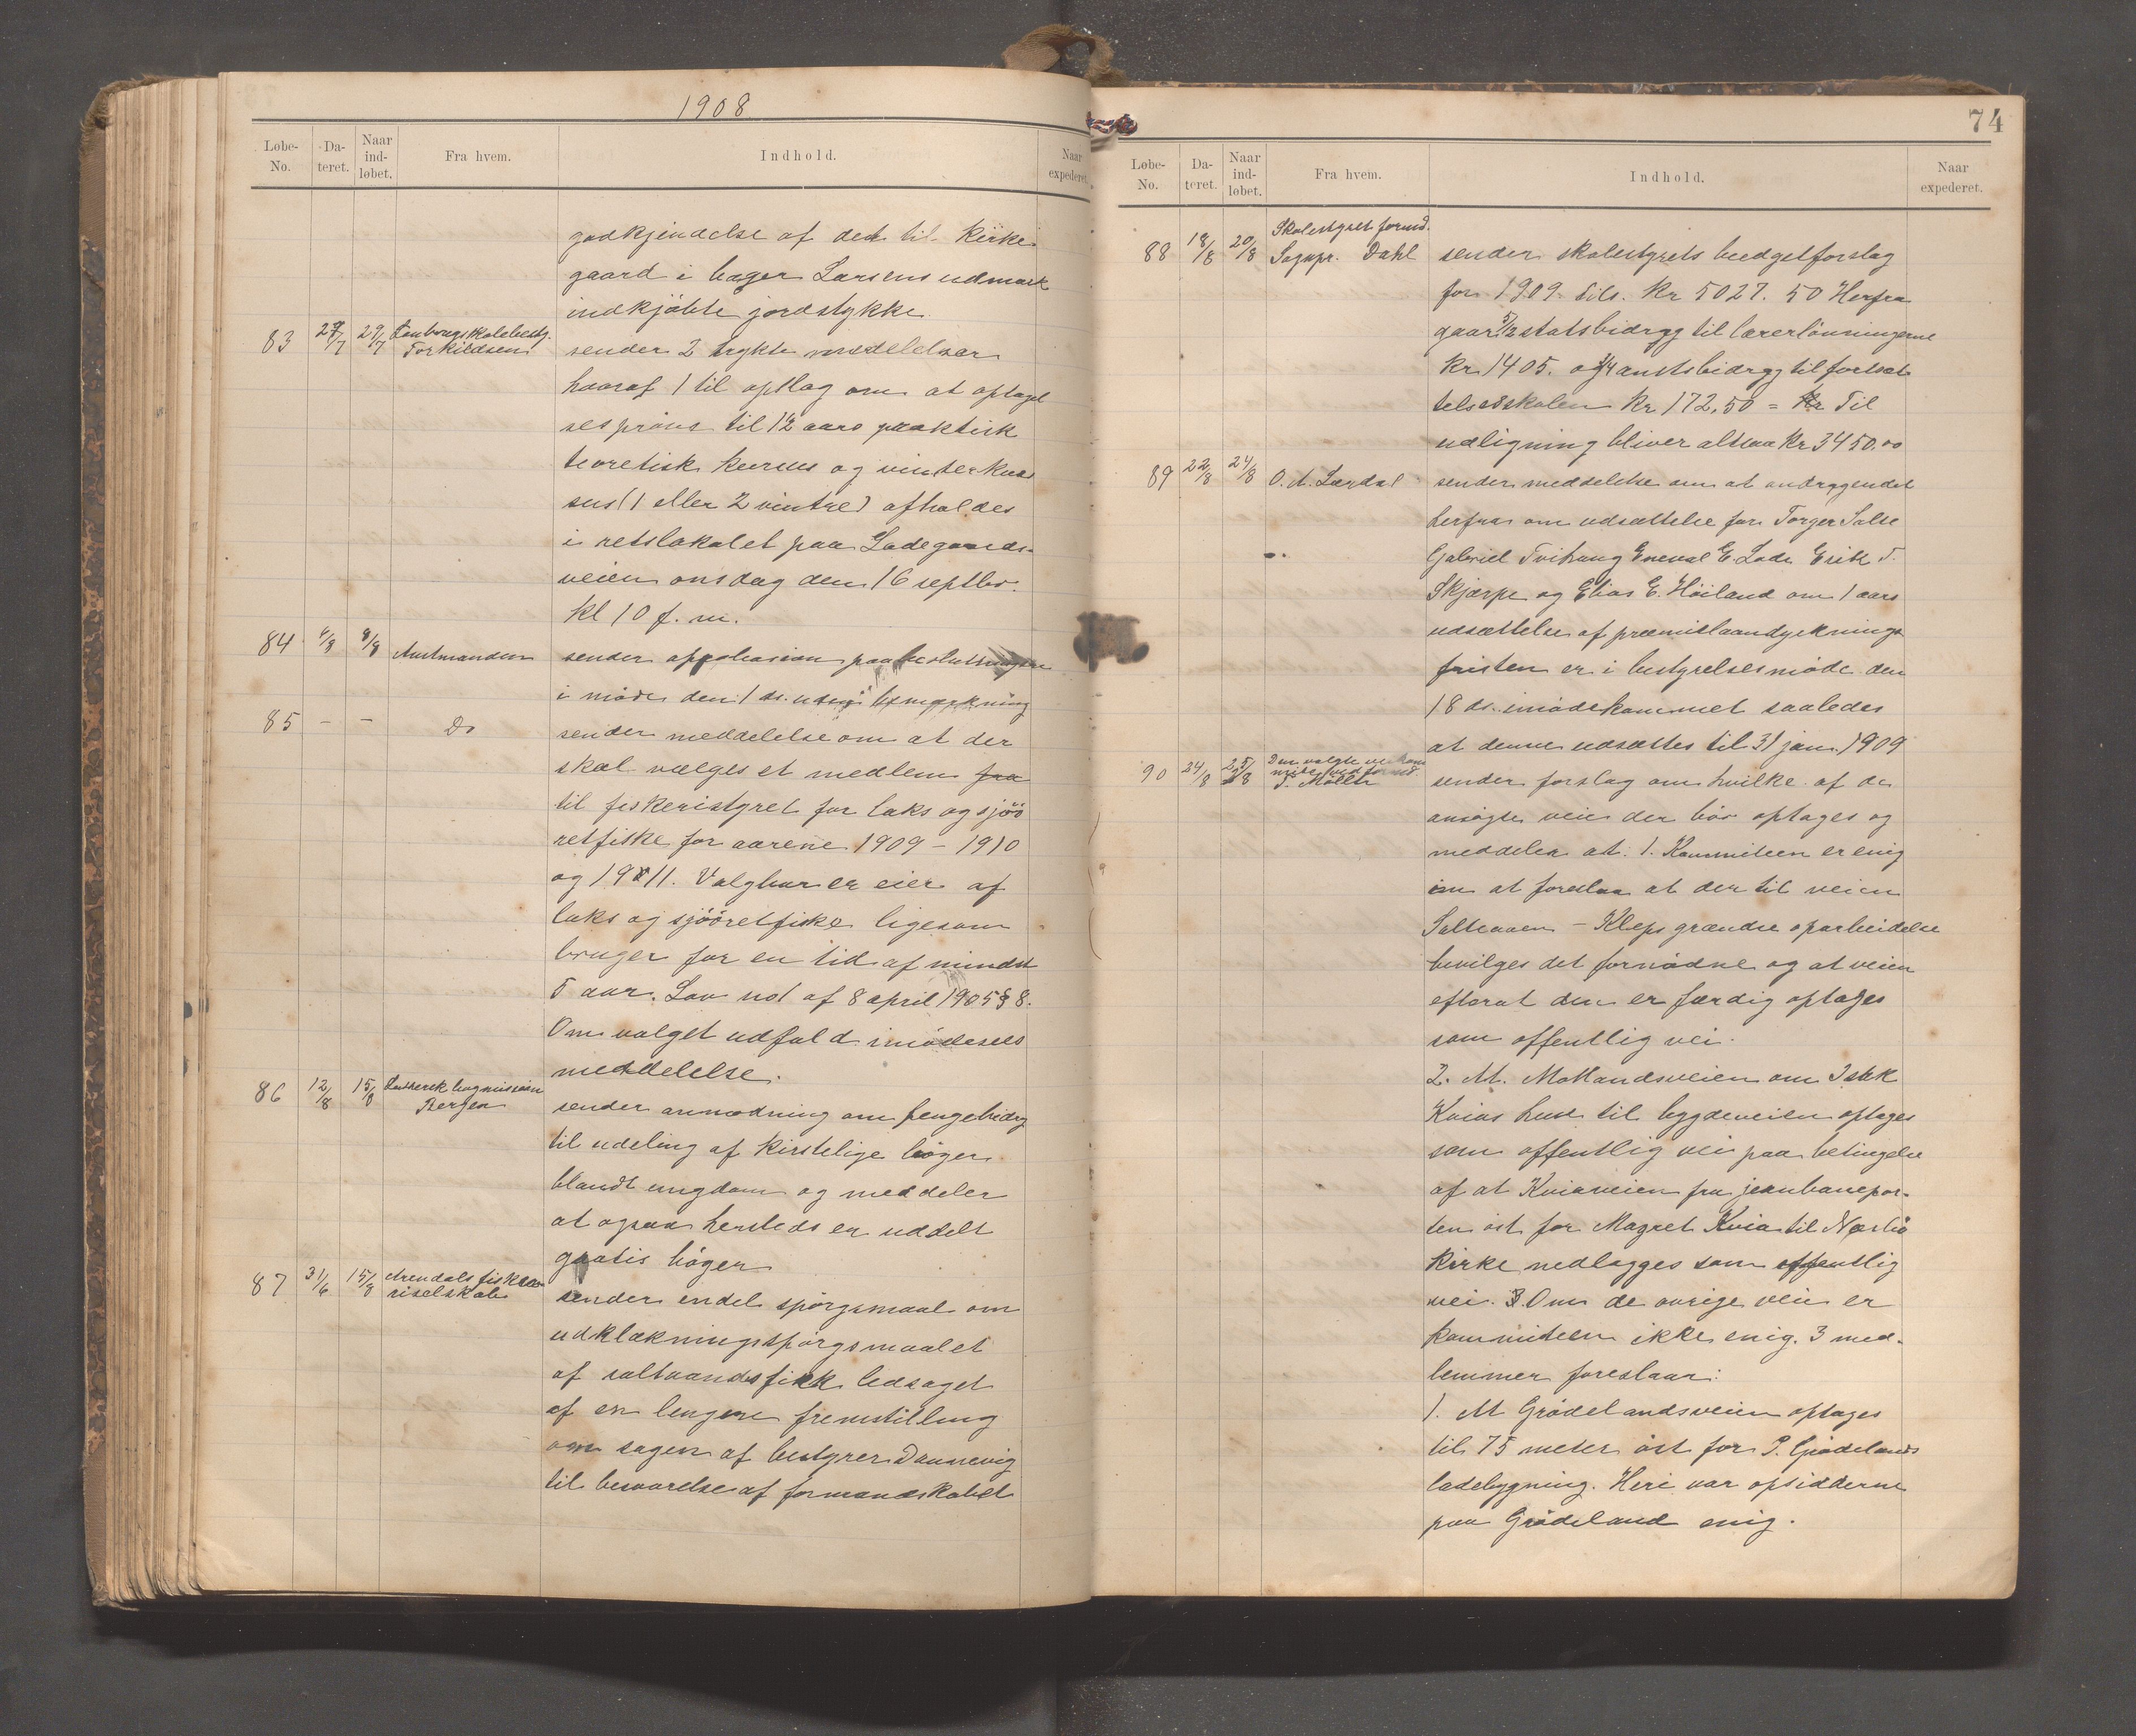 1908
Løbe-No. Dateret. Naar indløbet. Fra hvem. Indhold. Naar expederet.
godkjendelse af det til kirke
gaard i bager Larsens udmark
indkjøbte jordstykke.
83 27/7 29/7 Landbrugsskolebest. Torkildsen sender 2 trykte meddelelser
hvoraf 1 til opslag om at optagel
sesprøve til 1½ aars praktisk
teoretisk kursus og vinterkur
sus (1 eller 2 vintre) afholdes
i retslokalet paa Ladegaards-
veien onsdag den 16 septbr.
kl 10 f. m.
84 4/8 8/8 Amtmanden sender approbasion paa beslutningene
i møde den 1 ds. uden bemærkning
85 – – Do sender meddelelse om at der
skal vælges et medlem fra
til fiskeristyret for laks og sjøö
retfiske for aarene 1909 – 1910
og 1911. Valgbar er eier af
laks og sjøöretfiske ligesom
bruger for en tid af mindst
5 aar. Lov no1 af 8 april 1905 § 8.
Om valget udfald imødesees
meddelelse.
86 12/8 15/8 Luthersk bogmission Bergen sender anmodning om pengebidrg
til udeling af kirstelige bøger
blandt ungdom og meddeler
at ogsaa hersteds er uddelt
gratis bøger
87 31/6 15/8 Arendals fiskeriselskab sender endel spørgsmaal om
udklækningsspørgsmaalet
af saltvandsfisk ledsaget
af en lengere fremstilling
om sagen af bestyrer Dannevig
til besvarelse af formandskabet
74
Løbe-No. Dateret. Naar indløbet. Fra hvem. Indhold. Naar expederet.
88 18/8 20/8 Skolestyret formd. Sognpr. Dahl sender skolestyrets budgetforslag
for 1909. Tils. Kr 5027.50 Herfra
gaar statsbidrag til lærerlønningerne
Kr. 1405. og amtsbidrag til fortsæt
telsesskolen Kr 172,50 = Kr Til
udligning bliver altsaa Kr 3450.00
89 22/8 24/8 O. A. Lærdal sender meddelelse om at andragendet
herfra om udsættelse for Torger Salte
Gabriel Tvihaug Eneval E. Lode Erik T.
Skjærpe og Elias E. Höiland om 1 aars
udsættelse af præmislaandyrknings
fristen er i bestyrelsesmøde den
18 ds. imødekommet saaledes
at denne udsættes til 31 jan. 1909
90 24/8 25/8 Den valgte veikomite ved formd. J. Motland sender forslag om hvilke af de
ansøgte veie der bör optages og
meddeler at: 1. Kommiteen er enig
om at foreslaa at der til veien
Salteaaen – Kleps grændse oparbeidelse
bevilges det fornødne og at veien
efterat den er færdig optages
som offentlig vei.
2. At Motlandsveien om Isak
Kvias hus til bygdeveien optages
som offentlig vei paa betingelse
af at Kviaveien fra jernbanepor-
ten öst for Magret Kvia til Nærbø
kirke nedlægges som offentlig
vei. 3. Om de øvrige veie er
kommiteen ikke enig. 3 med-
lemmer foreslaar:
1. At Grødelandsveien optages
til 75 meter öst for P. Grødelands
ladebygning. Heri var opsidderne
paa Grødeland enig.